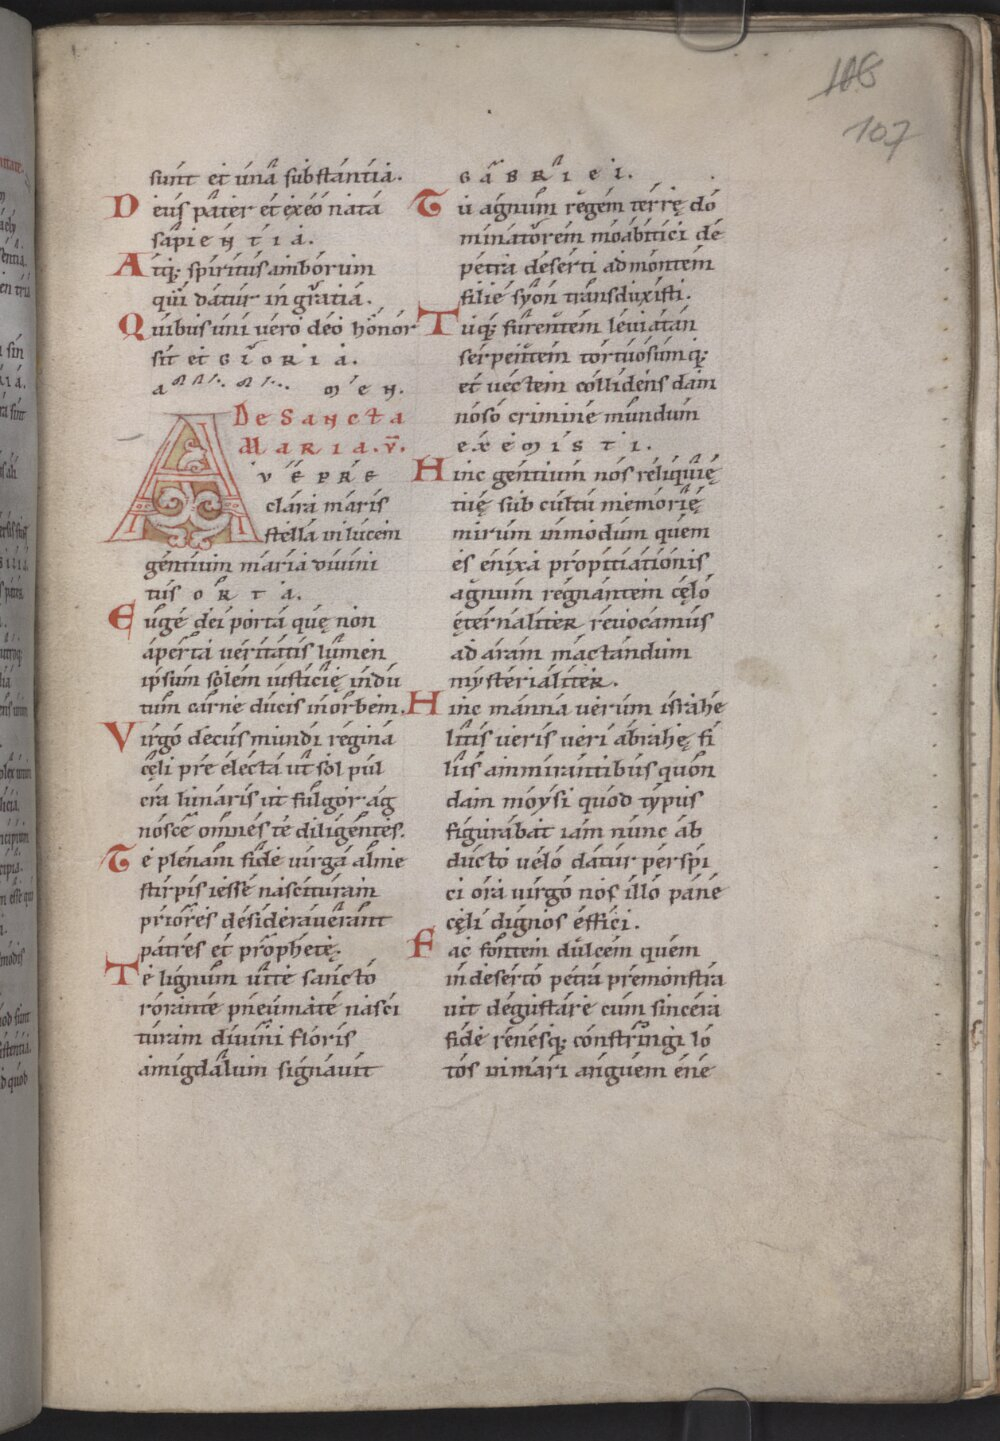 106
107
sunt et una substantia.
Deus pater et exeo nata
sapientia.
Atq; spiritus amborum
qui datur in gratia.
Quibus uni vero deo honor
sit et GLORIA.
a men.
De SANCTA
MARIA. v̄.
AVE PRE
clara maris
stella in lucem
gentium maria divini
tus ORTA.
Euge dei porta quę non
aperta veritatis lumen
ipsum solem iusticię indu
tum carne ducis in orbem.
Virgo decus mundi regina
cęli pre electa ut sol pul
cra lunaris ut fulgor ag
nosce omnes te diligentes.
Te plenam fide virga alme
stirpis iesse nascituram
priores desideraverant
patres et prophetę.
Te lignum vite sancto
rorante pneumate nasci
turam divini floris
amigdalum signavit
GABRIEL.
Tu agnum regem terrę do
minatorem moabitici de
petra deserti ad montem
filie syon transduxisti.
Tuq; furentem leviatan
serpentem tortuosumq;
et vectem collidens dam
noso crimine mundum
exemisti.
Hinc gentium nos reliquię
tuę sub cultu memorię
mirum inmodum quem
es enixa propitiationis
agnum regnantem cęlo
ęternaliter revocamus
ad aram mactandum
mysterialiter.
Hinc manna verum israhe
litis veris veri abrahę fi
liis ammirantibus quon
dam moysi quod typus
figurabat iam nunc ab
ducto velo datur perspi
ci ora virgo nos illo pane
cęli dignos effici.
Fac fontem dulcem quem
in deserto petra premonstra
vit degustare cum sincera
fide renesq; constringi lo
tos in mari anguem ene